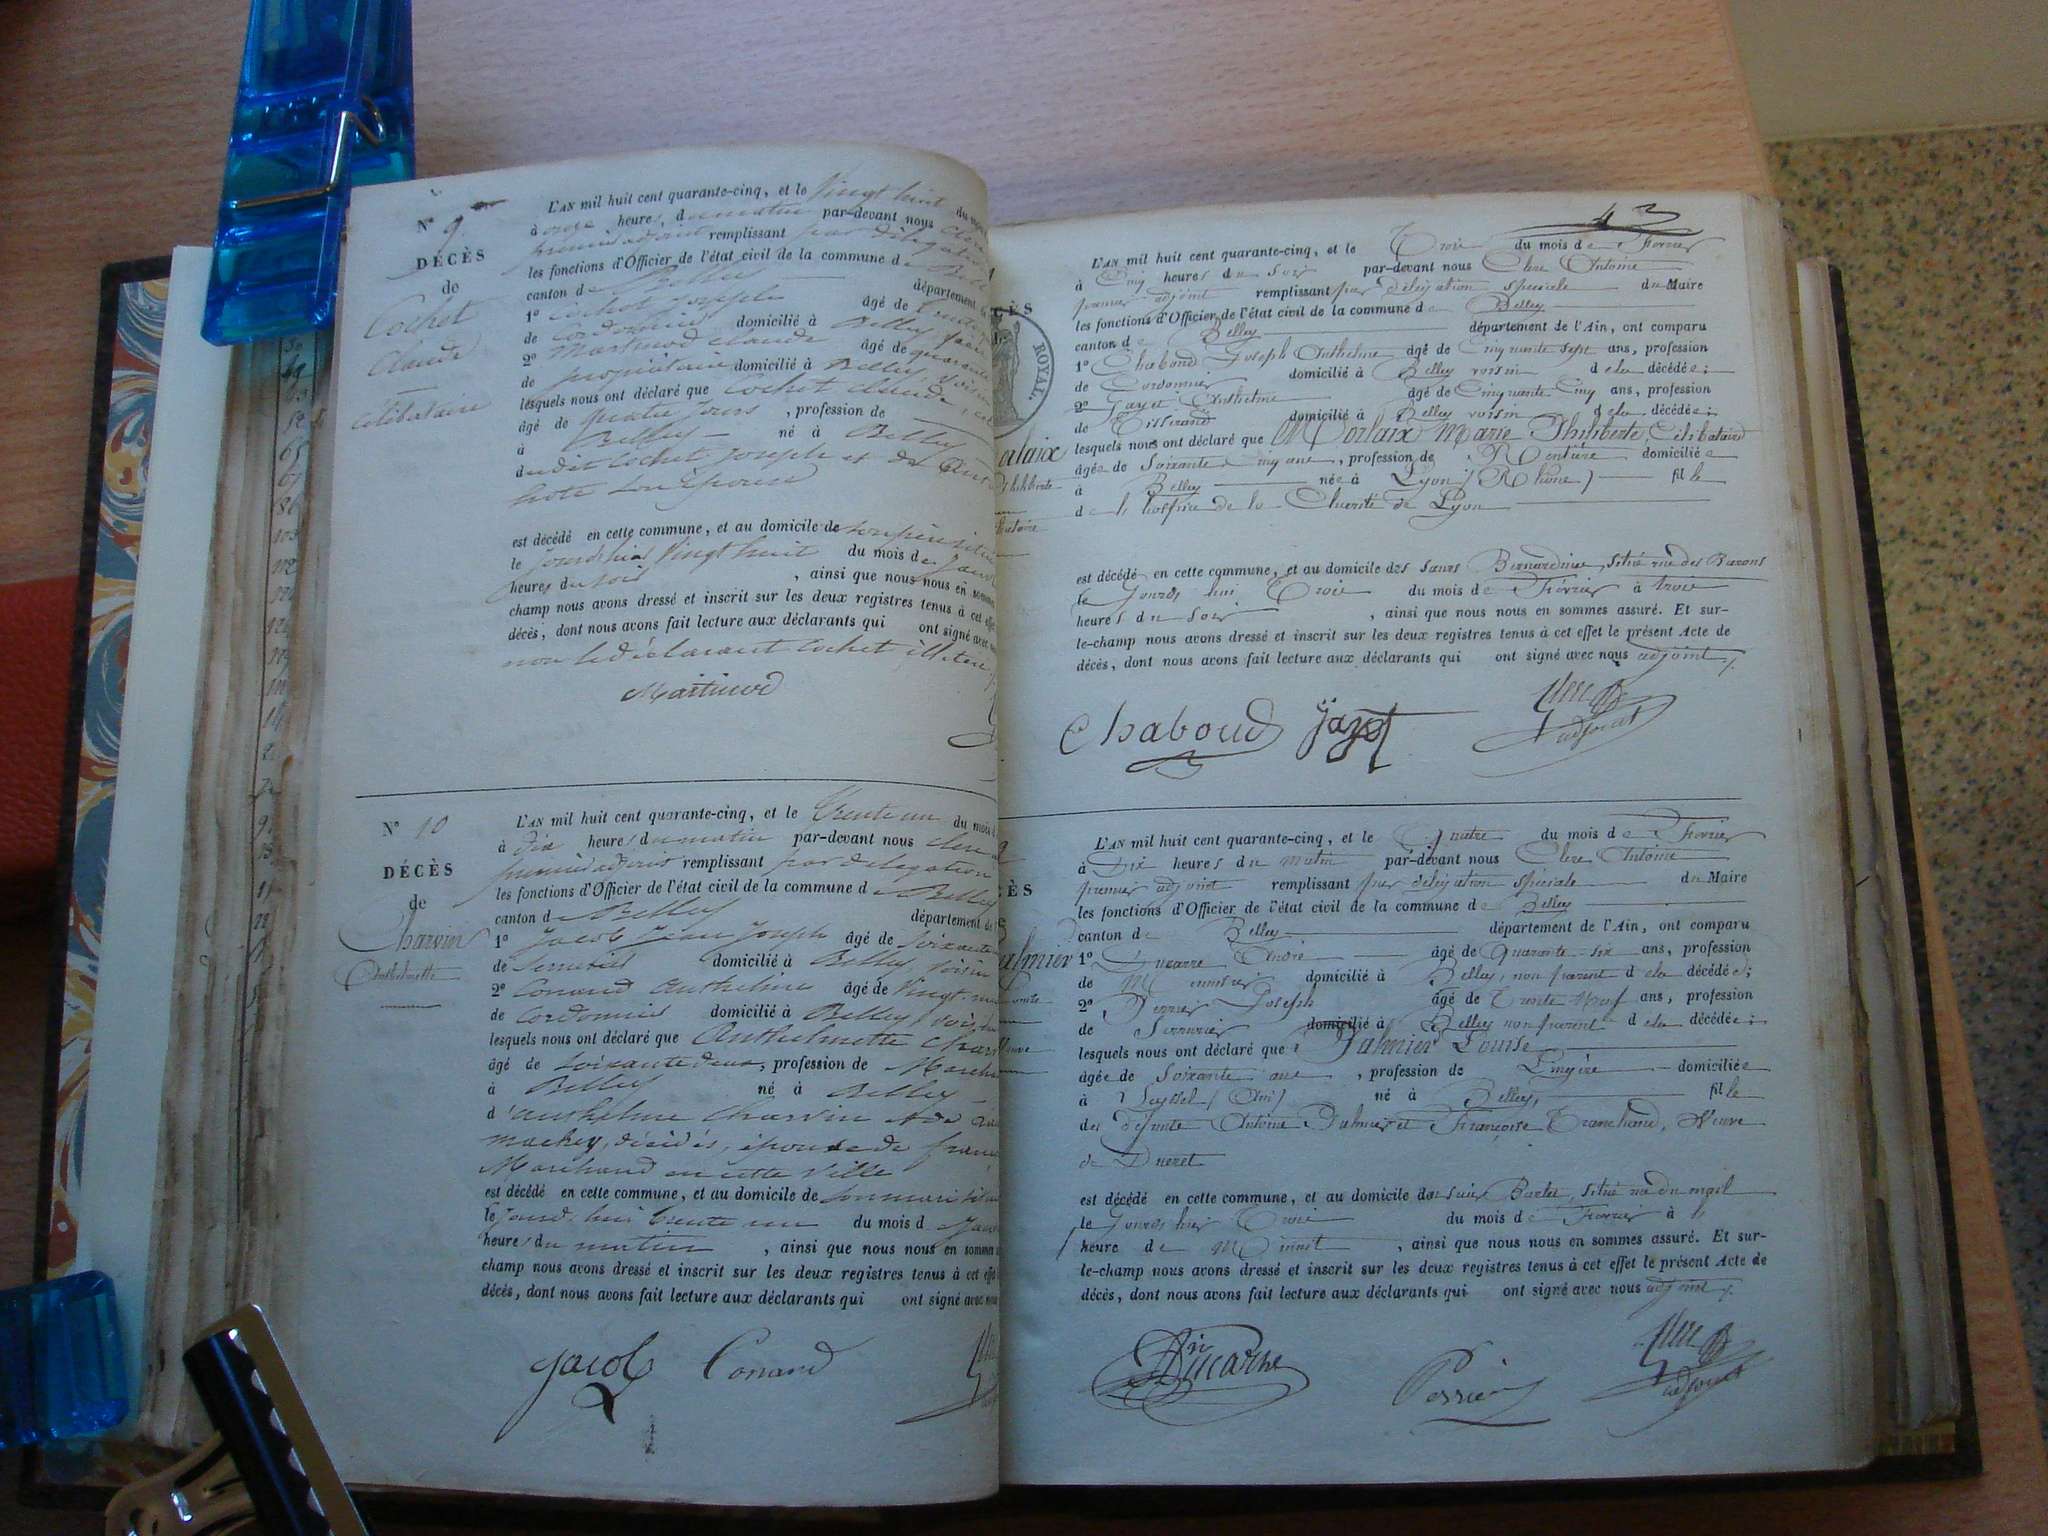 N° 9.
DÉCÈS
de
Cochet
Claude
célibataire
L'AN mil huit cent quarante-cinq, et le Vingt huit du
à onze heures, du matin par-devant nous
premier adjoint remplissant par délégation
les fonctions d'Officier de l'état civil de la commune de
canton de Belley département
1° Cochet Joseph âgé de
de Cordonnier domicilié à Belley
2° Martinod Claude âgé de quarante
de propriétaire domicilié à Belley, voisin
lesquels nous ont déclaré que Cochet Claude,
âgé de quatre jours, profession de
à Belley né à Belley
dudit Cochet Joseph et de
son épouse
est décédé en cette commune, et au domicile de son père
le jourd'hui Vingt huit du mois de
heures du soir, ainsi que nous nous en sommes
champ nous avons dressé et inscrit sur les deux registres tenus à cet effet
décès, dont nous avons fait lecture aux déclarants qui ont signé avec
non le déclarant Cochet illitéré
Martinod
N° 10
DÉCÈS
de
Charvin
Anthelmette
L'AN mil huit cent quarante-cinq, et le Trente un du mois d
à dix heures du matin par-devant nous Clerc
premier adjoint remplissant par délégation
les fonctions d'Officier de l'état civil de la commune de Belley
canton de Belley département de
1° Jacob Jean Joseph âgé de soixante
de domicilié à Belley, voisin
2° Conand Anthelme âgé de Vingt
de Cordonnier domicilié à Belley, voisin
lesquels nous ont déclaré que Anthelmette
âgé de soixante deux, profession de
à Belley né à Belley
d'Anthelme Charvin et de
décédés, épouse de
Marchand en cette Ville
est décédé en cette commune, et au domicile de son mari
le jourd'hui trente un du mois d
heure du matin, ainsi que nous nous en sommes
champ nous avons dressé et inscrit sur les deux registres tenus à cet effet
décès, dont nous avons fait lecture aux déclarants qui ont signé avec nous
Jacob Conand
ROYAL.
L'AN mil huit cent quarante-cinq, et le Trois du mois de Février
à Cinq heures du Soir par-devant nous Clerc Antoine
premier adjoint remplissant par délégation spéciale du Maire
les fonctions d'Officier de l'état civil de la commune de Belley
canton de Belley département de l'Ain, ont comparu
1° Chaboud Joseph Anthelme âgé de Cinquante sept ans, profession
de Cordonnier domicilié à Belley voisin de la décédée;
2° Gayet Anthelme âgé de Cinquante Cinq ans, profession
de Tisserand domicilié à Belley voisin de la décédée;
lesquels nous ont déclaré que Morlaix Marie Philiberte, Célibataire
âgée de Soixante Cinq ans, profession de Rentière domiciliée
à Belley née à Lyon (Rhône) fille
de l'hospice de la Charité de Lyon
est décédé en cette commune, et au domicile des sœurs Bernardines, situé rue des Barons
le Jourd'hui Trois du mois de Février à trois
heures du Soir, ainsi que nous nous en sommes assuré. Et sur-
le-champ nous avons dressé et inscrit sur les deux registres tenus à cet effet le présent Acte de
décès, dont nous avons fait lecture aux déclarants qui ont signé avec nous adjoint
Chaboud Gayet Clerc
adjoint
L'AN mil huit cent quarante-cinq, et le Quatre du mois de Février
à Dix heures du matin par-devant nous Clerc Antoine
premier adjoint remplissant par délégation spéciale du Maire
les fonctions d'Officier de l'état civil de la commune de Belley
canton de Belley département de l'Ain, ont comparu
1° Ducarre André âgé de Quarante-six ans, profession
de Menuisier domicilié à Belley, non parent de la décédée;
2° Perrier Joseph âgé de Trente Neuf ans, profession
de Serrurier domicilié à Belley non parent de la décédée;
lesquels nous ont déclaré que Palmier Louise
âgée de Soixante ans, profession de Lingère domiciliée
à Seyssel (Ain) né à Belley, fille
des défunts Antoine Palmier et Françoise Tranchand, Veuve
de Ducret
est décédé en cette commune, et au domicile du sieur situé rue du mail
le Jourd'hier Trois du mois de Février à
heure de Minuit, ainsi que nous nous en sommes assuré. Et sur-
le-champ nous avons dressé et inscrit sur les deux registres tenus à cet effet le présent Acte de
décès, dont nous avons fait lecture aux déclarants qui ont signé avec nous adjoint
Ducarre Perrier Clerc
adjoint